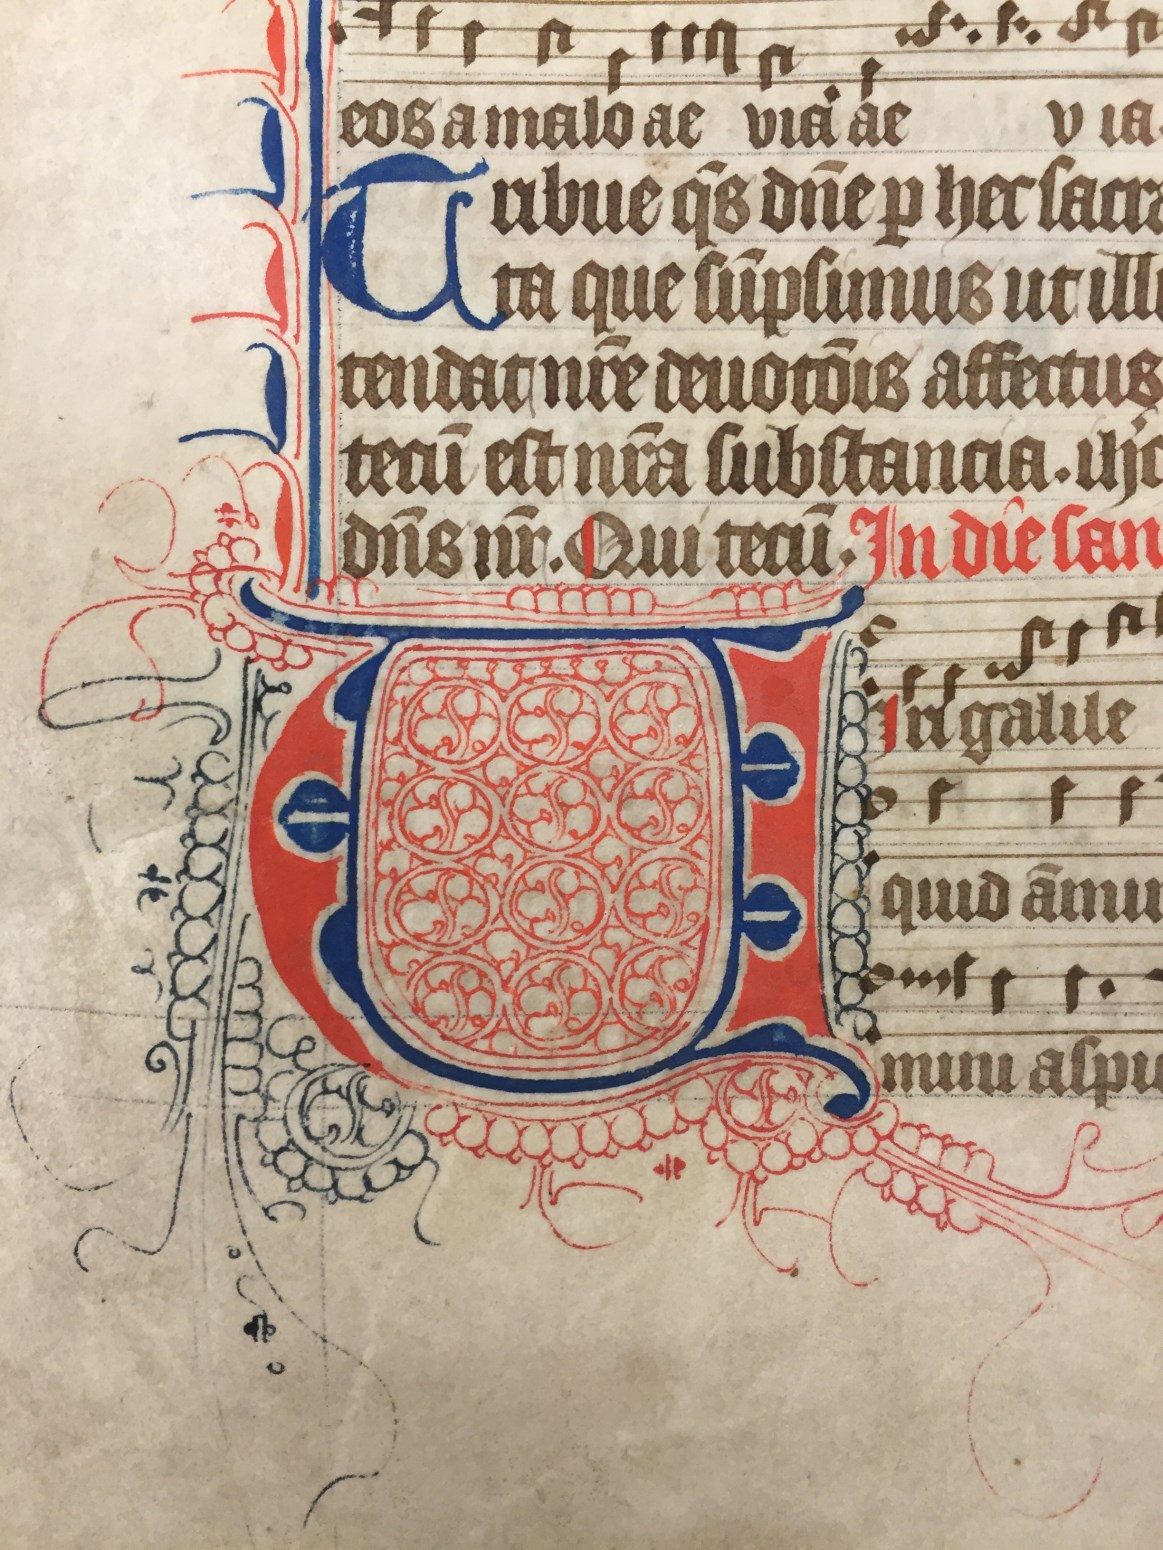 eos a malo ae via ae v ia
Tribue q̄s dn̄e p̄ hec sacra
ta que sūpsimus ut illu
tendat nr̄e deuotōis affectus
tecū est nr̄a substancia. ihc
dn̄s nr̄. Qui tecū. In die san
Viri galile
quid āmir
mini aspic